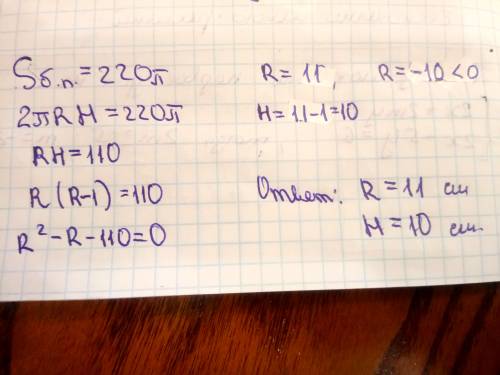 Sб.п. = 220π
2πRH = 220π
RH = 110
R(R-1) = 110
R² - R - 110 = 0
R = 11, R = -10 < 0
H = 11 - 1 = 10
Ответ: R = 11 см
H = 10 см.